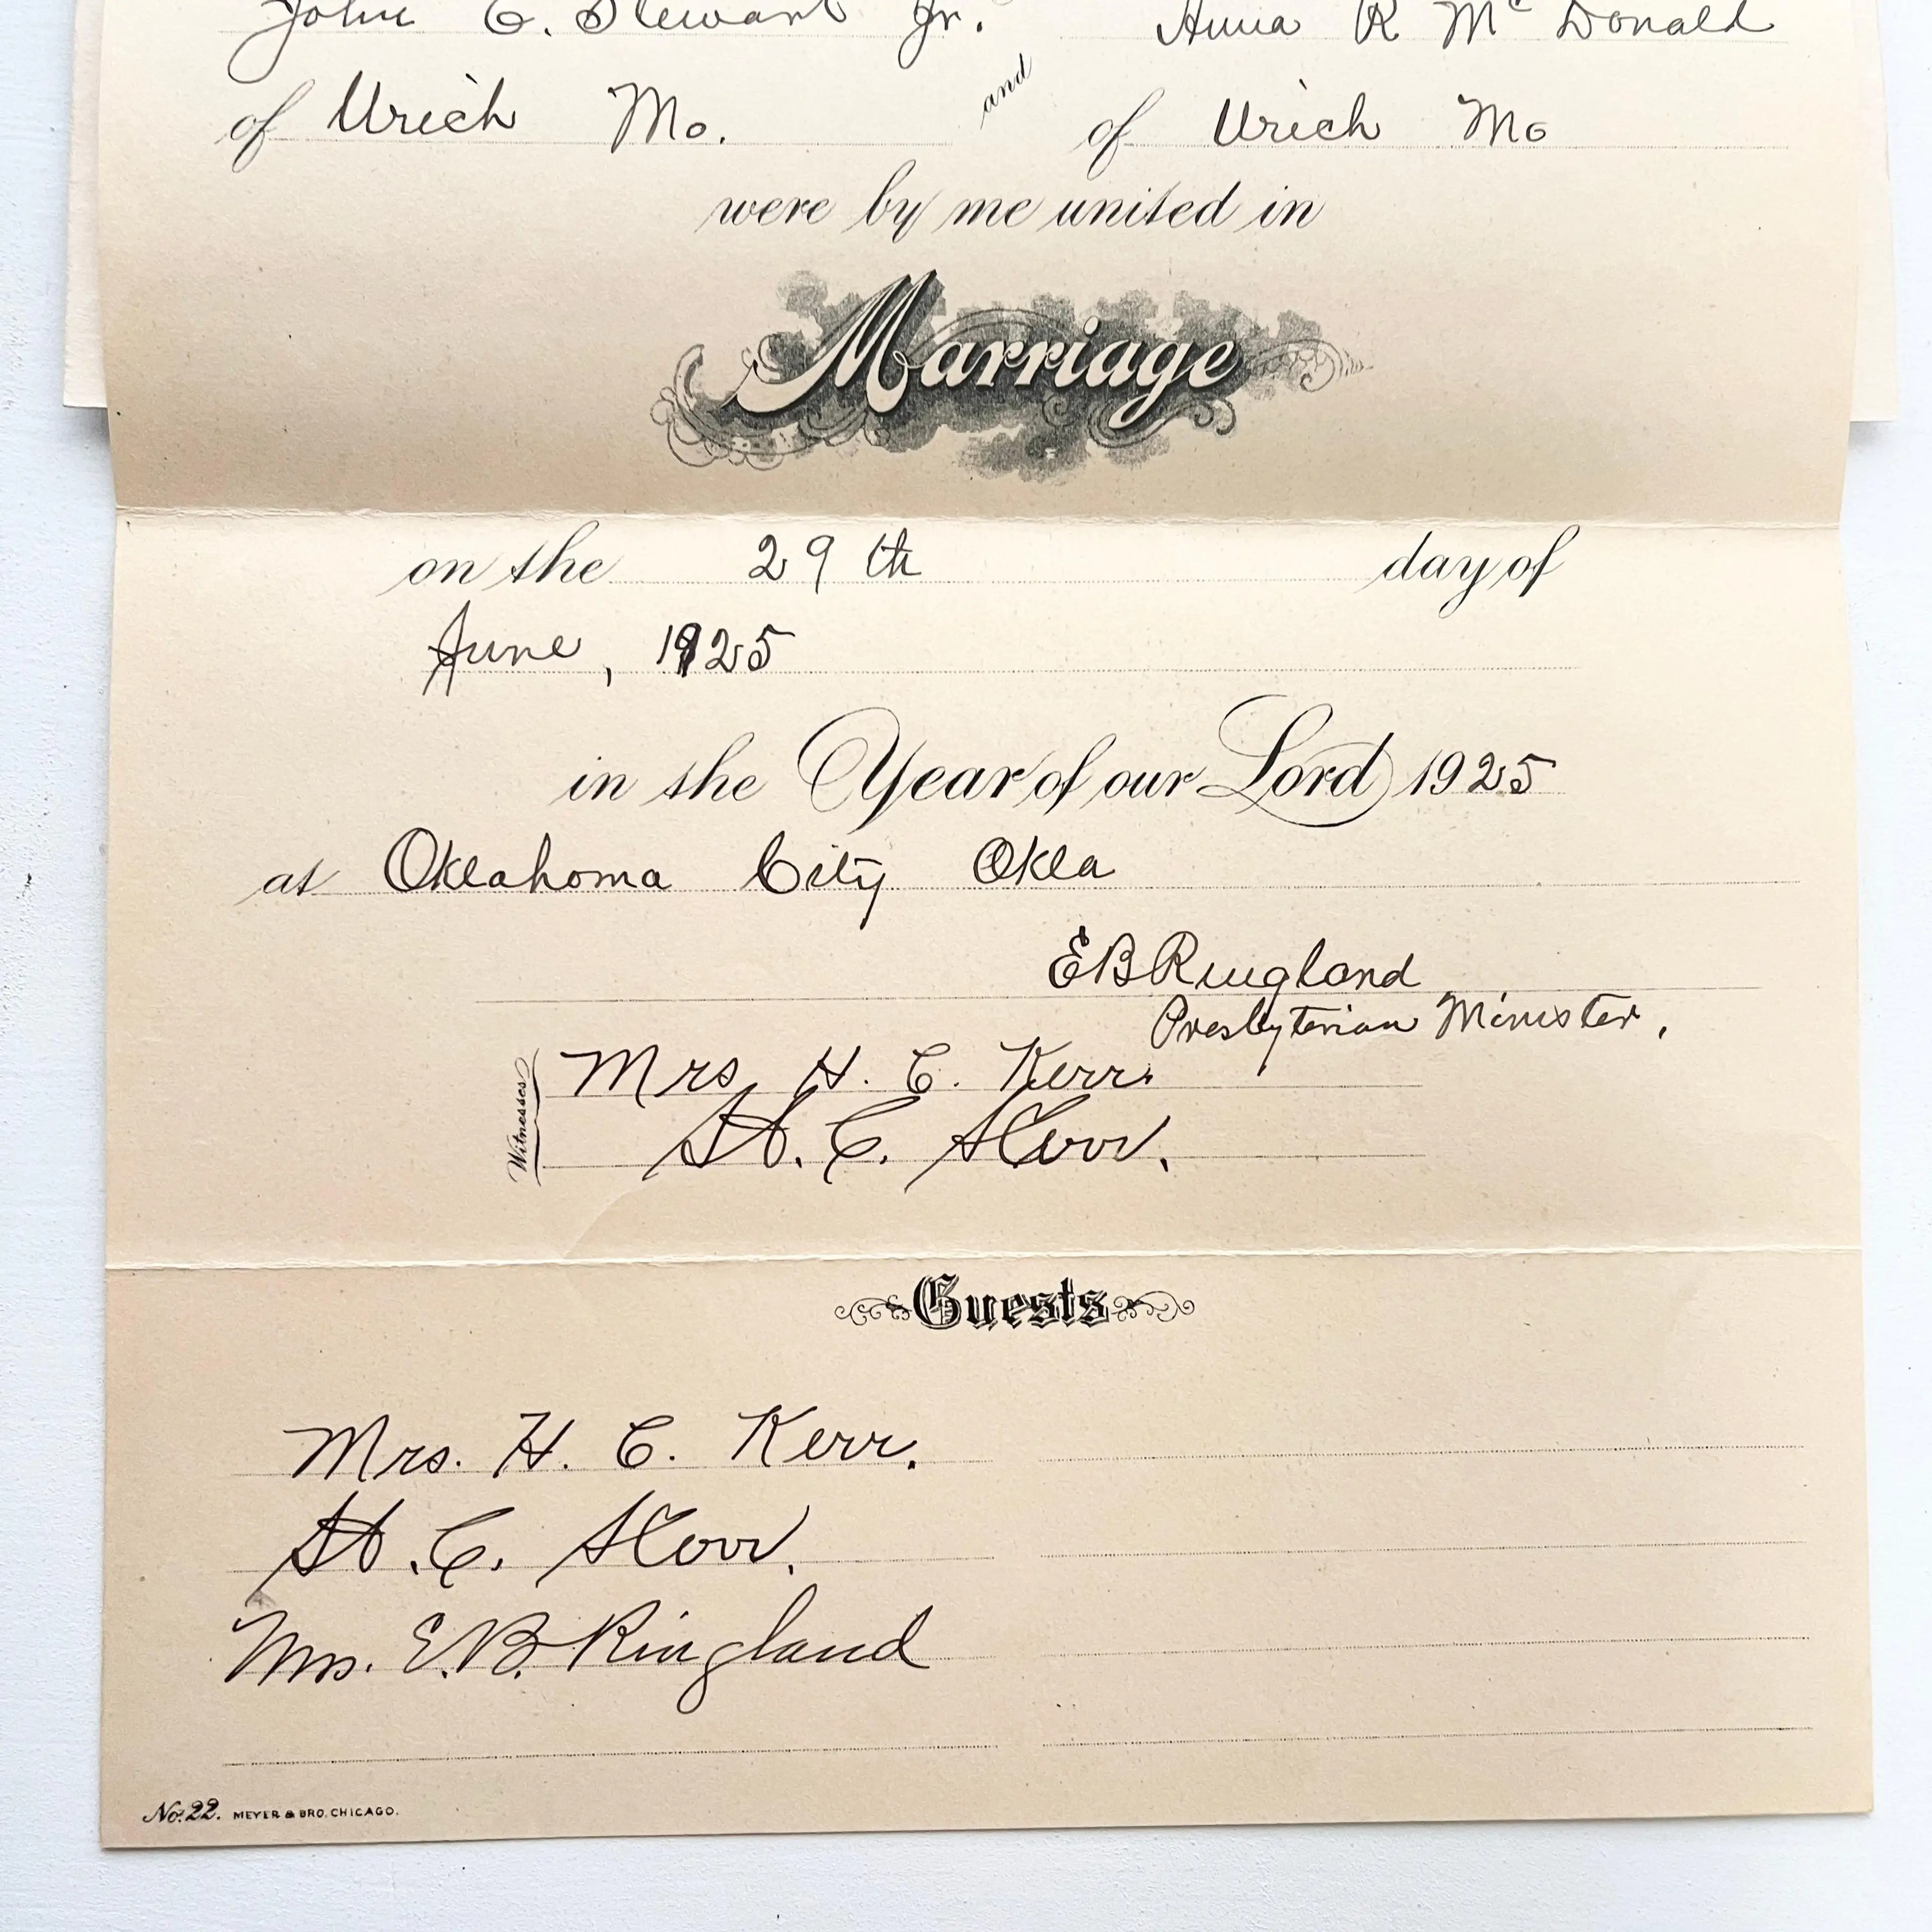 John C. Stewart Jr. and Anna R Mc Donald
of Urich Mo. of Urich Mo
were by me united in
Marriage
on the 29th day of
June, 1925
in the Year of our Lord 1925
at Oklahoma City Okla
E B Ringland
Presbyterian Minister,
Witnesses
Mrs H. C. Kerr.
H. C. Kerr.
Guests
Mrs. H. C. Kerr.
H. C. Kerr.
Mrs. E. B. Ringland
No. 22. MEYER & BRO. CHICAGO.